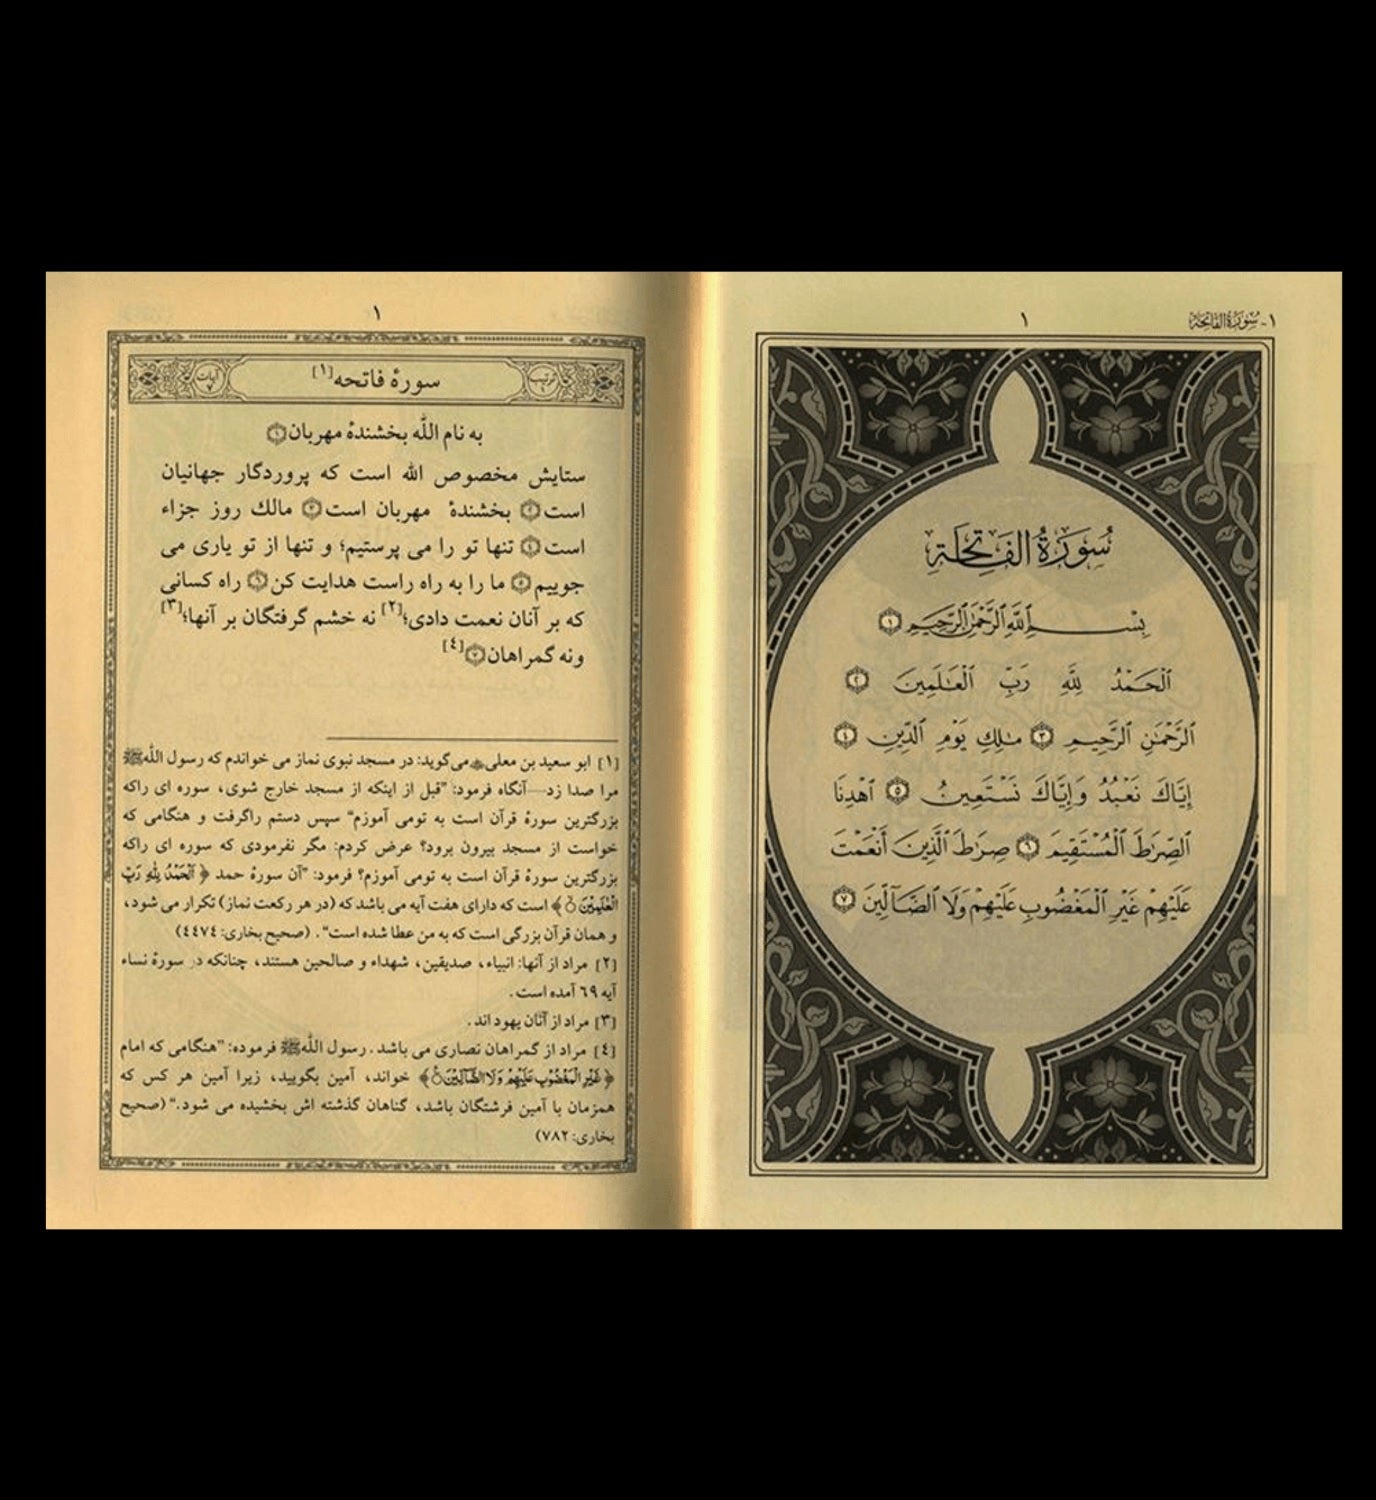 ١- سُورَةُ الفَاتِحَة
١
سُورَةُ الفَاتِحَةِ
بِسْمِ ٱللَّهِ ٱلرَّحْمَٰنِ ٱلرَّحِيمِ ۝١
ٱلْحَمْدُ لِلَّهِ رَبِّ ٱلْعَٰلَمِينَ ۝٢
ٱلرَّحْمَٰنِ ٱلرَّحِيمِ ۝٣ مَٰلِكِ يَوْمِ ٱلدِّينِ ۝٤
إِيَّاكَ نَعْبُدُ وَإِيَّاكَ نَسْتَعِينُ ۝٥ ٱهْدِنَا
ٱلصِّرَٰطَ ٱلْمُسْتَقِيمَ ۝٦ صِرَٰطَ ٱلَّذِينَ أَنْعَمْتَ
عَلَيْهِمْ غَيْرِ ٱلْمَغْضُوبِ عَلَيْهِمْ وَلَا ٱلضَّآلِّينَ ۝٧
١
ترتیب ١
سورهٔ فاتحه[١]
آیات ٧
به نام الله بخشندهٔ مهربان۝١
ستایش مخصوص الله است که پروردگار جهانیان
است۝٢ بخشندهٔ مهربان است۝٣ مالك روز جزاء
است۝٤ تنها تو را می پرستیم؛ و تنها از تو یاری می
جوییم۝٥ ما را به راه راست هدایت کن۝٦ راه کسانی
که بر آنان نعمت دادی؛[٢] نه خشم گرفتگان بر آنها؛[٣]
ونه گمراهان۝٧[٤]
[١] ابو سعید بن معلیﷺمی‌گوید: در مسجد نبوی نماز می خواندم که رسول اللهﷺ
مرا صدا زد—آنگاه فرمود: "قبل از اینکه از مسجد خارج شوی، سوره ای راکه
بزرگترین سورهٔ قرآن است به تومی آموزم" سپس دستم راگرفت و هنگامی که
خواست از مسجد بیرون برود؟ عرض کردم: مگر نفرمودی که سوره ای راکه
بزرگترین سورهٔ قرآن است به تومی آموزم؟ فرمود: "آن سورهٔ حمد ﴿ اَلْحَمْدُ لِلّٰهِ رَبِّ
الْعٰلَمِیْنَ ﴾ است که دارای هفت آیه می باشد که (در هر رکعت نماز) تکرار می شود،
و همان قرآن بزرگی است که به من عطا شده است". (صحیح بخاری: ٤٤٧٤)
[٢] مراد از آنها: انبیاء، صدیقین، شهداء و صالحین هستند، چنانکه در سورهٔ نساء
آیه ٦٩ آمده است.
[٣] مراد از آنان یهود اند.
[٤] مراد از گمراهان نصاری می باشد. رسول اللهﷺ فرموده: "هنگامی که امام
﴿ غَیْرِ الْمَغْضُوْبِ عَلَیْهِمْ وَلَا الضَّآلِّیْنَ ﴾ خواند، آمین بگویید، زیرا آمین هر کس که
همزمان با آمین فرشتگان باشد، گناهان گذشته اش بخشیده می شود." (صحیح
بخاری: ٧٨٢)